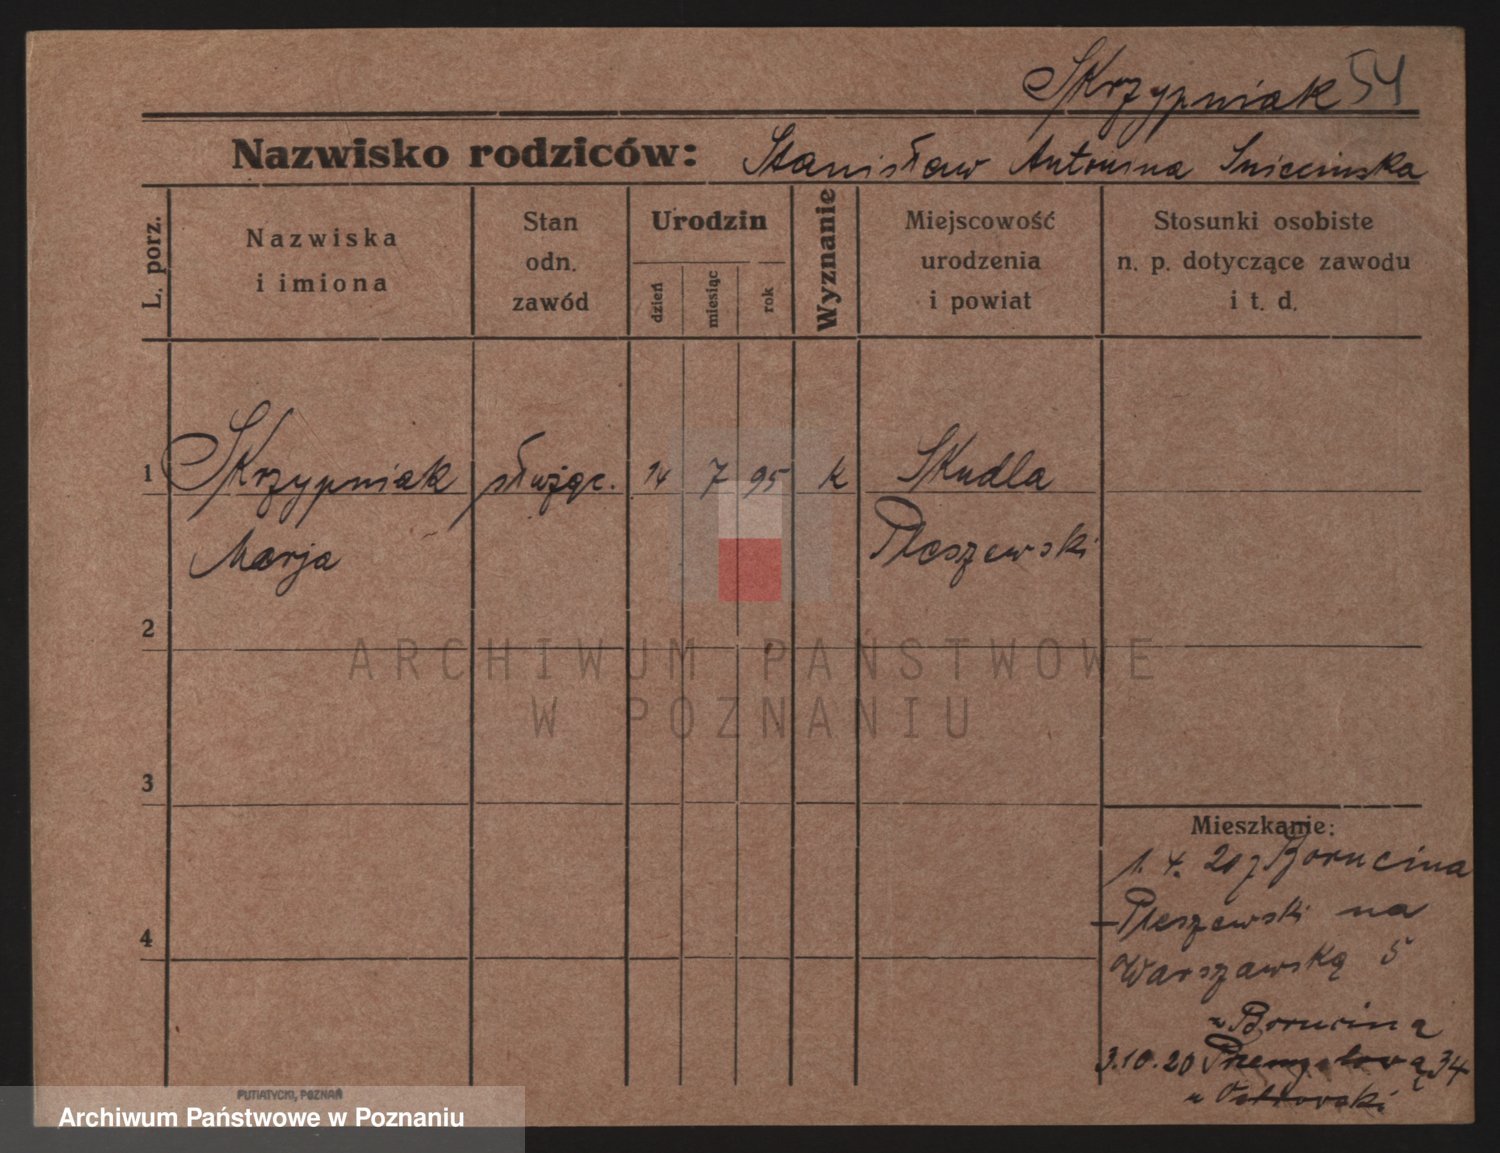 Skrzypniak 54
Nazwisko rodziców: Stanisław Antonina
L. porz.
Nazwiska
i imiona
Stan
odn.
zawód
Urodzin
dzień
miesiąc
rok
Wyznanie
Miejscowość
urodzenia
i powiat
Stosunki osobiste
n. p. dotyczące zawodu
i t. d.
1 Skrzypniak służąc. 14 7 95 k Skudla
Marja Pleszewski
2
ARCHIWUM PAŃSTWOWE
W POZNANIU
3
Mieszkanie:
1. 4. 20 z Borucina
Pleszewski na
4
Warszawską 5
Borucina
3.10.20 34
PUTIATYCKI, POZNAŃ
Archiwum Państwowe w Poznaniu